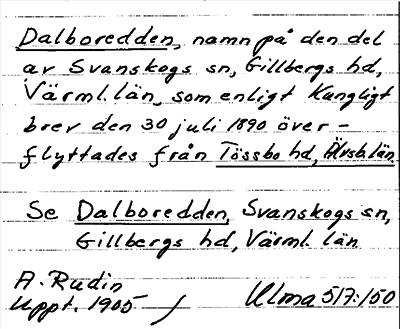 Dalboredden, namn på den del
av Svanskogs sn, Gillbergs hd,
Värml. län, som enligt Kungligt
brev den 30 juli 1890 över-
flyttades från Tössbo hd, Älvsb. län
Se Dalboredden, Svanskogs sn,
Gillbergs hd, Värml. län
A. Rudin
Uppt. 1905
Ulma 517:150